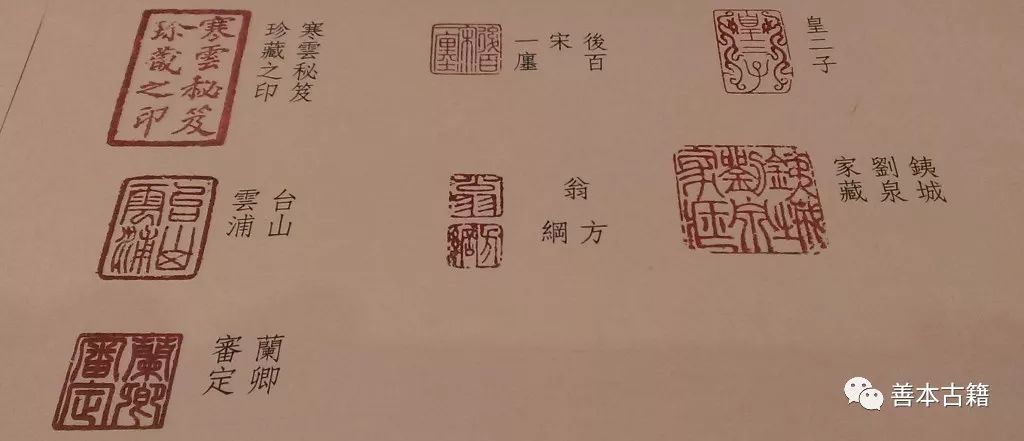 皇二子
皇二子
後百
宋
一廛
後百
宋
一廛
寒雲秘笈
珍藏之印
寒雲秘笈
珍藏之印
銕城
劉泉
家藏
銕城
劉泉
家藏
翁
方
綱
翁
方綱
台山
雲浦
台山
雲浦
蘭卿
審定
蘭卿
審定
善本古籍